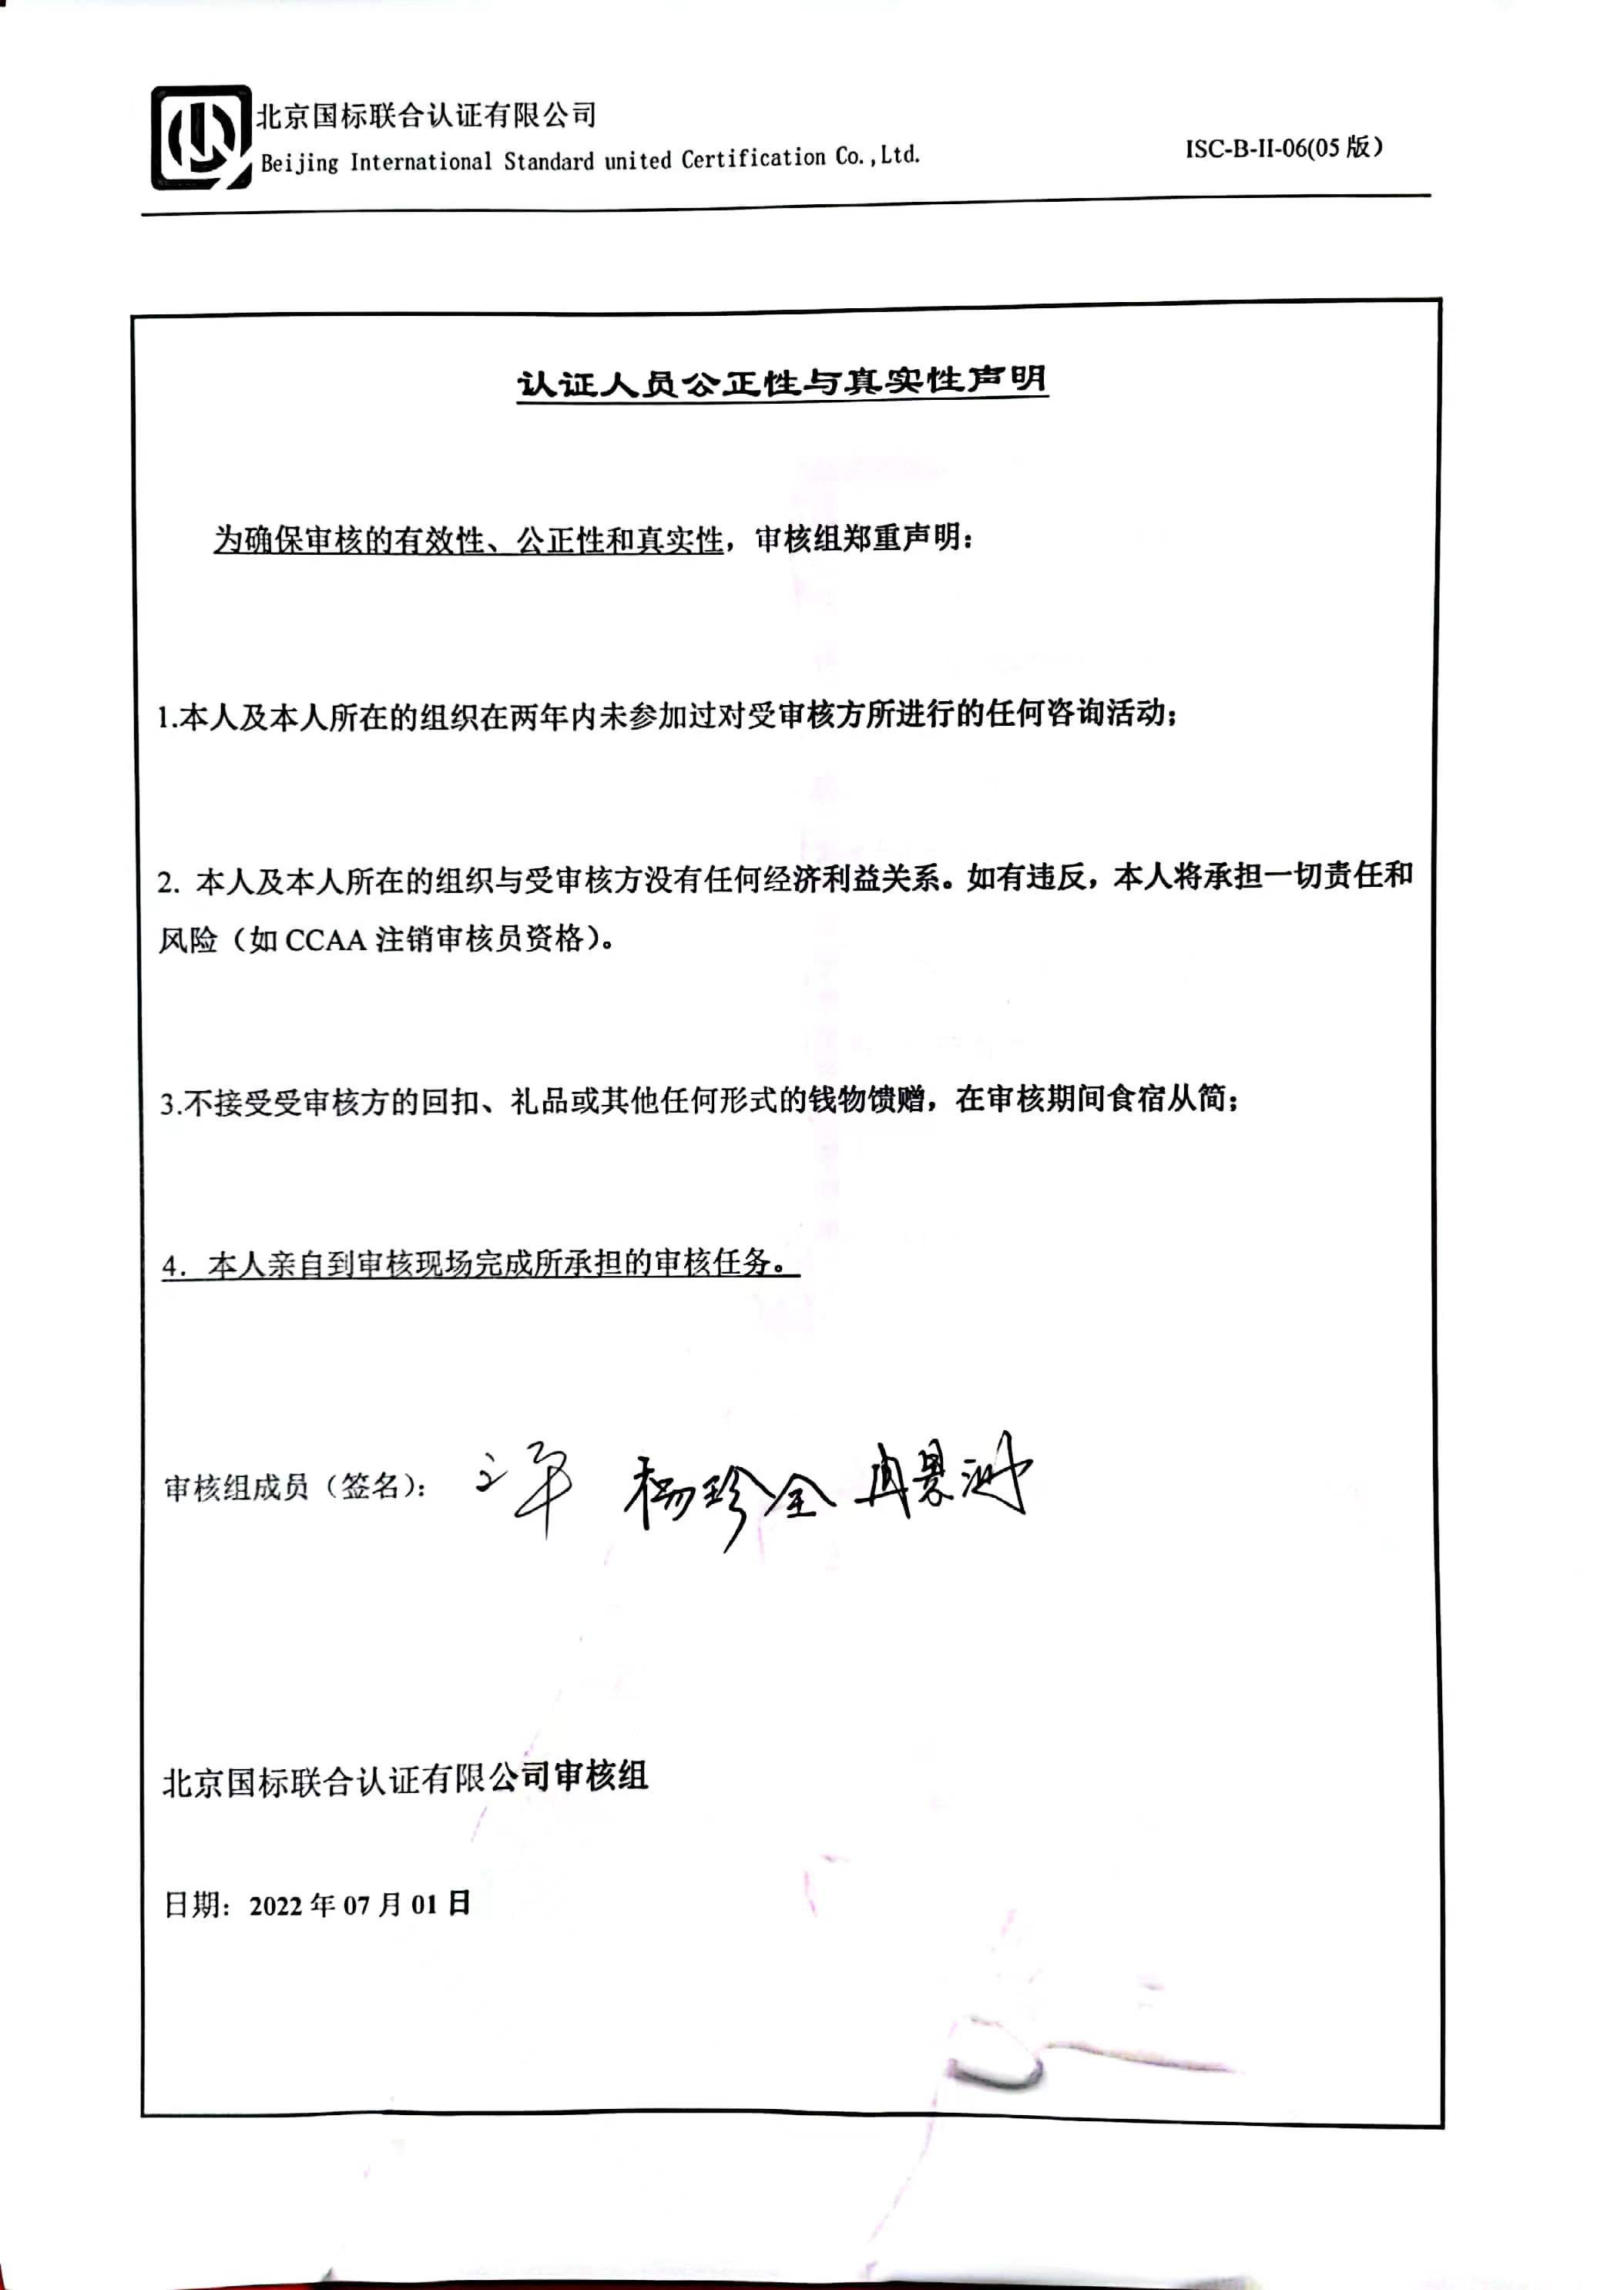 北京国标联合认证有限公司
Beijing International Standard united Certification Co.,Ltd.
ISC-B-II-06(05 版）
认证人员公正性与真实性声明
为确保审核的有效性、公正性和真实性，审核组郑重声明：
1.本人及本人所在的组织在两年内未参加过对受审核方所进行的任何咨询活动；
2. 本人及本人所在的组织与受审核方没有任何经济利益关系。如有违反，本人将承担一切责任和
风险（如 CCAA 注销审核员资格）。
3.不接受受审核方的回扣、礼品或其他任何形式的钱物馈赠，在审核期间食宿从简；
4. 本人亲自到审核现场完成所承担的审核任务。
审核组成员（签名）： 杨珍全
北京国标联合认证有限公司审核组
日期：2022 年 07 月 01 日